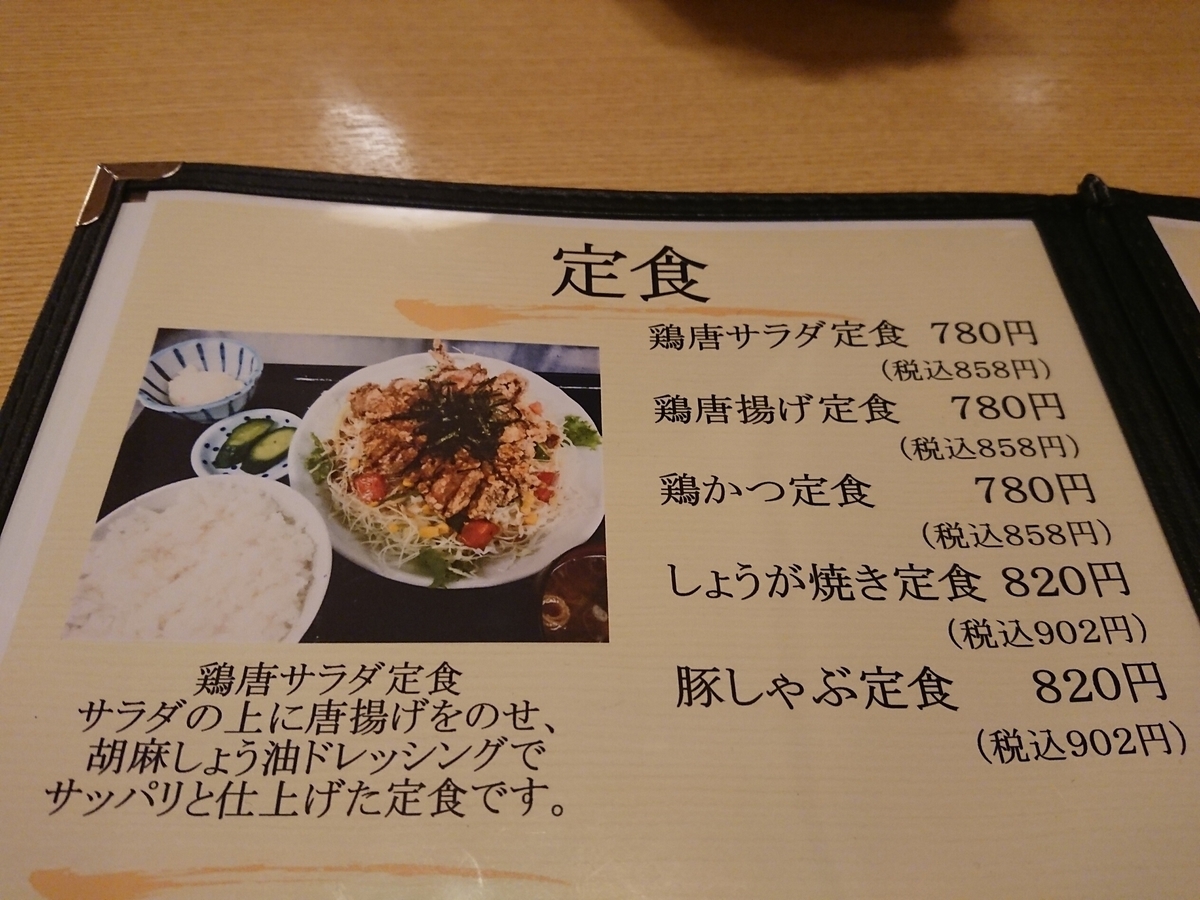 定食
鶏唐サラダ定食 780円
(税込858円)
鶏唐揚げ定食 780円
(税込858円)
鶏かつ定食 780円
(税込858円)
しょうが焼き定食 820円
(税込902円)
豚しゃぶ定食 820円
(税込902円)
鶏唐サラダ定食
サラダの上に唐揚げをのせ、
胡麻しょう油ドレッシングで
サッパリと仕上げた定食です。